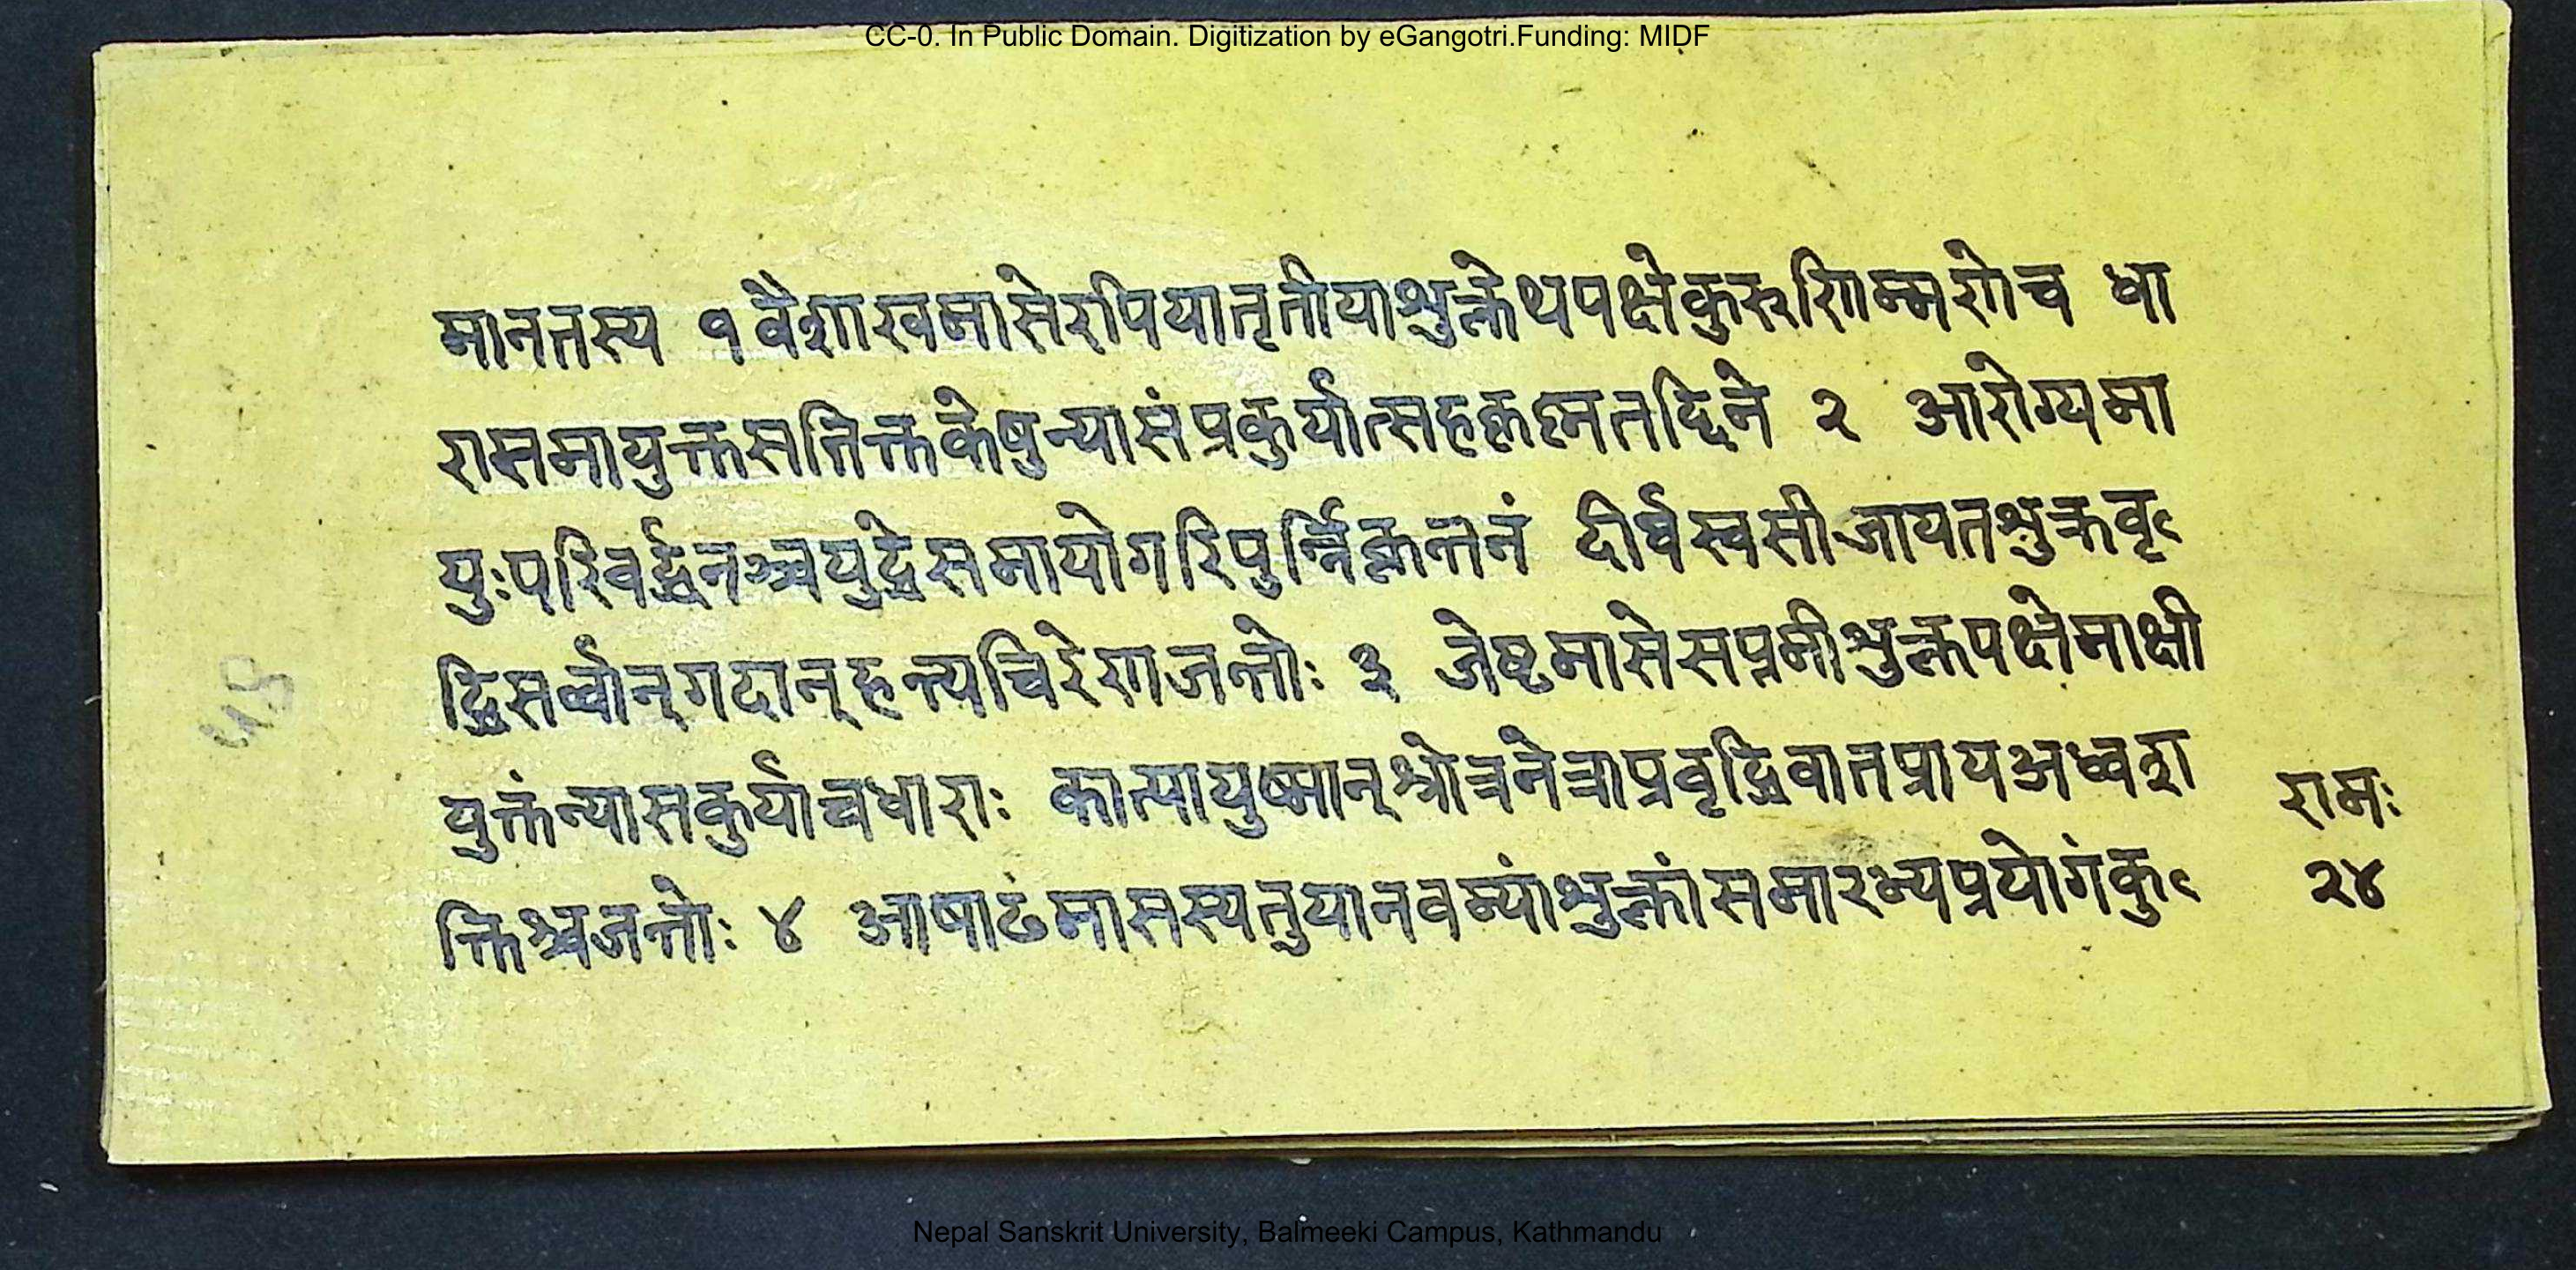 CC-0. In Public Domain. Digitization by eGangotri.Funding: MIDF
मानतस्य १ वैशाखमासेरपियातृतीयाश्रुक्लेथपक्षेकुरुरिाम्मरोच धा
रासमायुक्तसतिक्तकेषुन्यासंप्रकुर्यात्सहकृत्नतद्दिने २ आरोग्यमा
युःपरिवर्द्धनञ्चयुद्धेसमायोगरिपुर्न्निकृन्तनं दीर्घस्वसीजायतश्रुक्रवृ
द्धिसर्व्वान्गदान्हन्त्यचिरेणजन्तोः ३ जेष्टमासेसप्तमीश्रुक्लपक्षेमाक्षी
युक्तंन्यासकुर्याच्चधाराः कात्यायुष्मान्श्रोत्रनेत्राप्रवृद्धिवातप्रायअध्वशा
क्तिश्चजन्तोः ४ आषाढमासस्यतुयानवम्यांश्रुक्लांसमारभ्यप्रयोगंकु
रामः
२४
Nepal Sanskrit University, Balmeeki Campus, Kathmandu